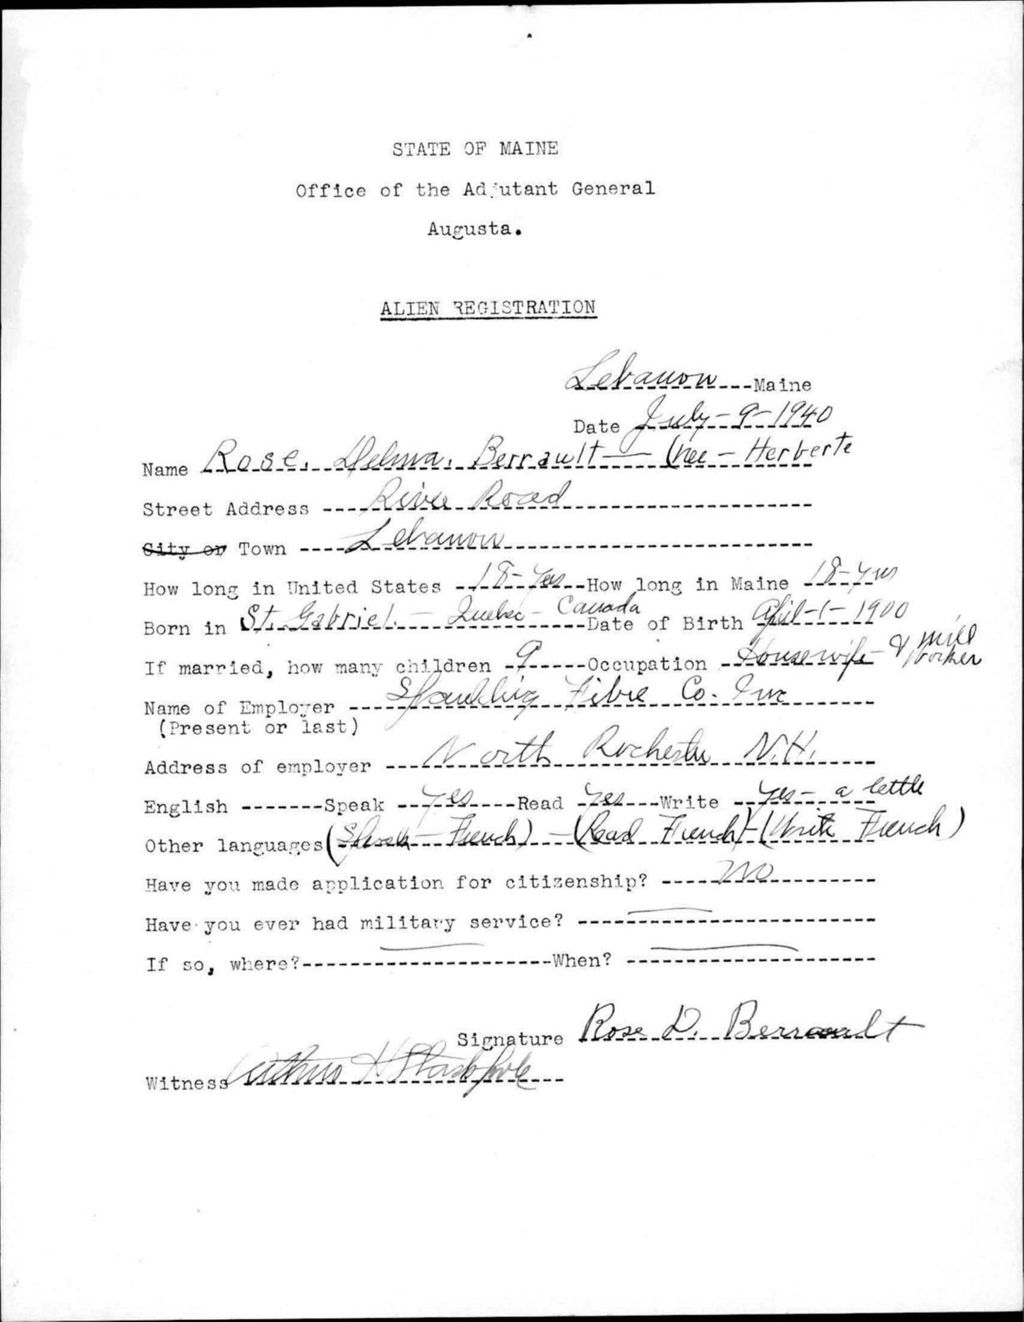 STATE OF MAINE
Office of the Adjutant General
Augusta.
ALIEN REGISTRATION
Lebanon Maine
Date July-9-1940
Name Rose. Delma. Berrault — (nee - Herberte
Street Address River Road
City or Town Lebanon
How long in United States 18-yrs How long in Maine 18-yrs
Born in St. Gabriel. - Quebec - Canada Date of Birth April-1-1900
If married, how many children 9 Occupation Housewife & mill worker
Name of Employer Spaulding Fibre Co. Inc
(Present or last)
Address of employer North Rochester N.H.
English Speak yes Read yes Write yes - a little
Other languages (Speak - French) - (Read French) - (Write French)
Have you made application for citizenship? No
Have you ever had military service? —
If so, where? — When? —
Signature Rose D. Berrault
Witness Arthur H Stackpole